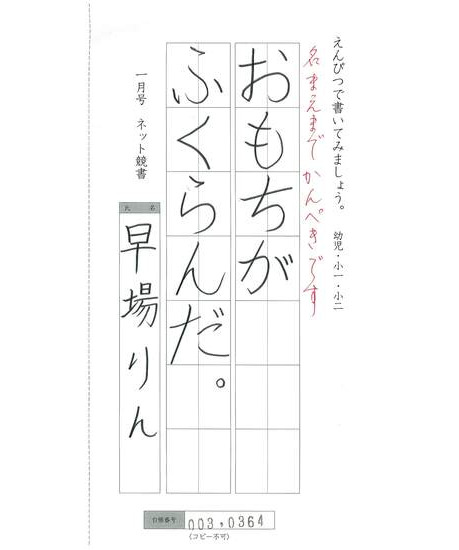 えんぴつで書いてみましょう。 幼児・小一・小二
名まえまで かんぺきです
おもちが
ふくらんだ。
一月号 ネット競書
氏名
早場りん
台帳番号 003,0364
(コピー不可)